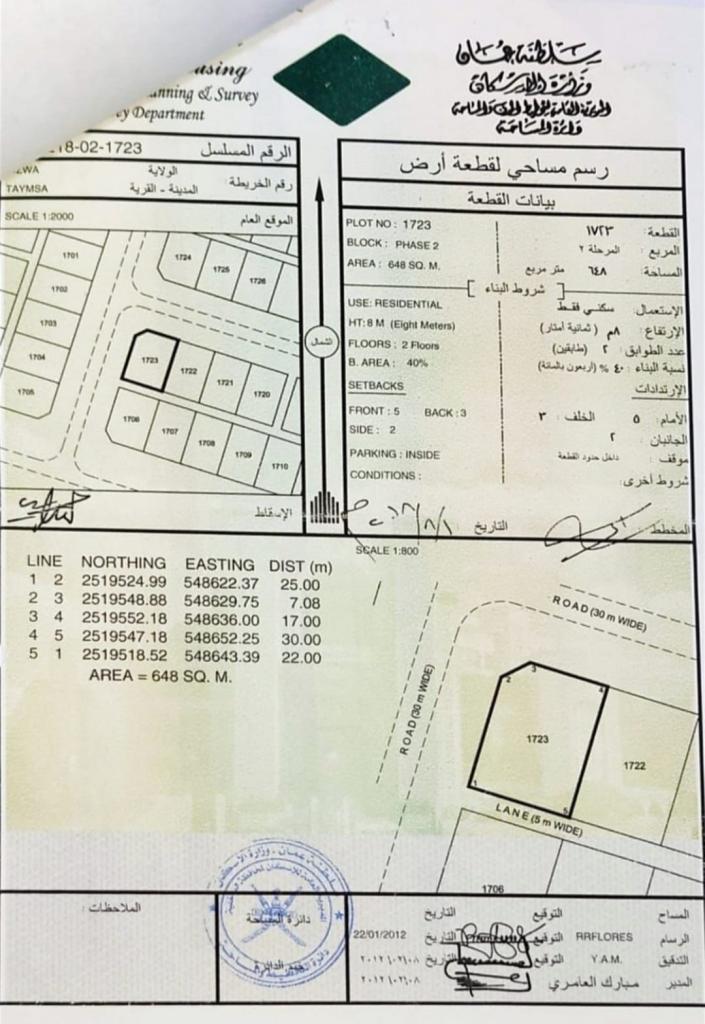 سلطنة عمان
وزارة الإسكان
دائرة المساحة
using
anning & Survey
ey Department
18-02-1723 الرقم المسلسل
الولاية
TAYMSA المدينة - القرية رقم الخريطة
SCALE 1:2000 الموقع العام
1701
1702
1703
1704
1705
1724
1725
1726
1723
1722
1721
1720
1706
1707
1708
1709
1710
الشمال
الإسقاط
رسم مساحي لقطعة أرض
بيانات القطعة
PLOT NO : 1723 القطعة: ١٧٢٣
BLOCK : PHASE 2 المربع : المرحلة ٢
AREA : 648 SQ. M. المساحة: ٦٤٨ متر مربع
شروط البناء
USE: RESIDENTIAL الإستعمال: سكني فقط
HT: 8 M (Eight Meters) الإرتفاع: ٨م (ثمانية أمتار)
FLOORS : 2 Floors عدد الطوابق: ٢ (طابقين)
B. AREA : 40% نسبة البناء: ٤٠ % (أربعون بالمائة)
SETBACKS الإرتدادات
FRONT : 5 BACK : 3 الأمام: ٥ الخلف: ٣
SIDE : 2 الجانبان: ٢
PARKING : INSIDE موقف: داخل حدود القطعة
CONDITIONS : شروط أخرى:
المخطط: التاريخ
SCALE 1:800
LINE NORTHING EASTING DIST (m)
1 2 2519524.99 548622.37 25.00
2 3 2519548.88 548629.75 7.08
3 4 2519552.18 548636.00 17.00
4 5 2519547.18 548652.25 30.00
5 1 2519518.52 548643.39 22.00
AREA = 648 SQ. M.
ROAD (30 m WIDE)
ROAD (30 m WIDE)
1
2
3
4
5
1723
1722
LANE (5 m WIDE)
1706
الملاحظات :
دائرة المساحة
المساح التوقيع التاريخ
الرسام RRFLORES التوقيع التاريخ 22/01/2012
التدقيق Y.A.M. التوقيع التاريخ ٢٠١٢/٠٢/٠٨
المدير مبارك العامري ٢٠١٢/٠٢/٠٨